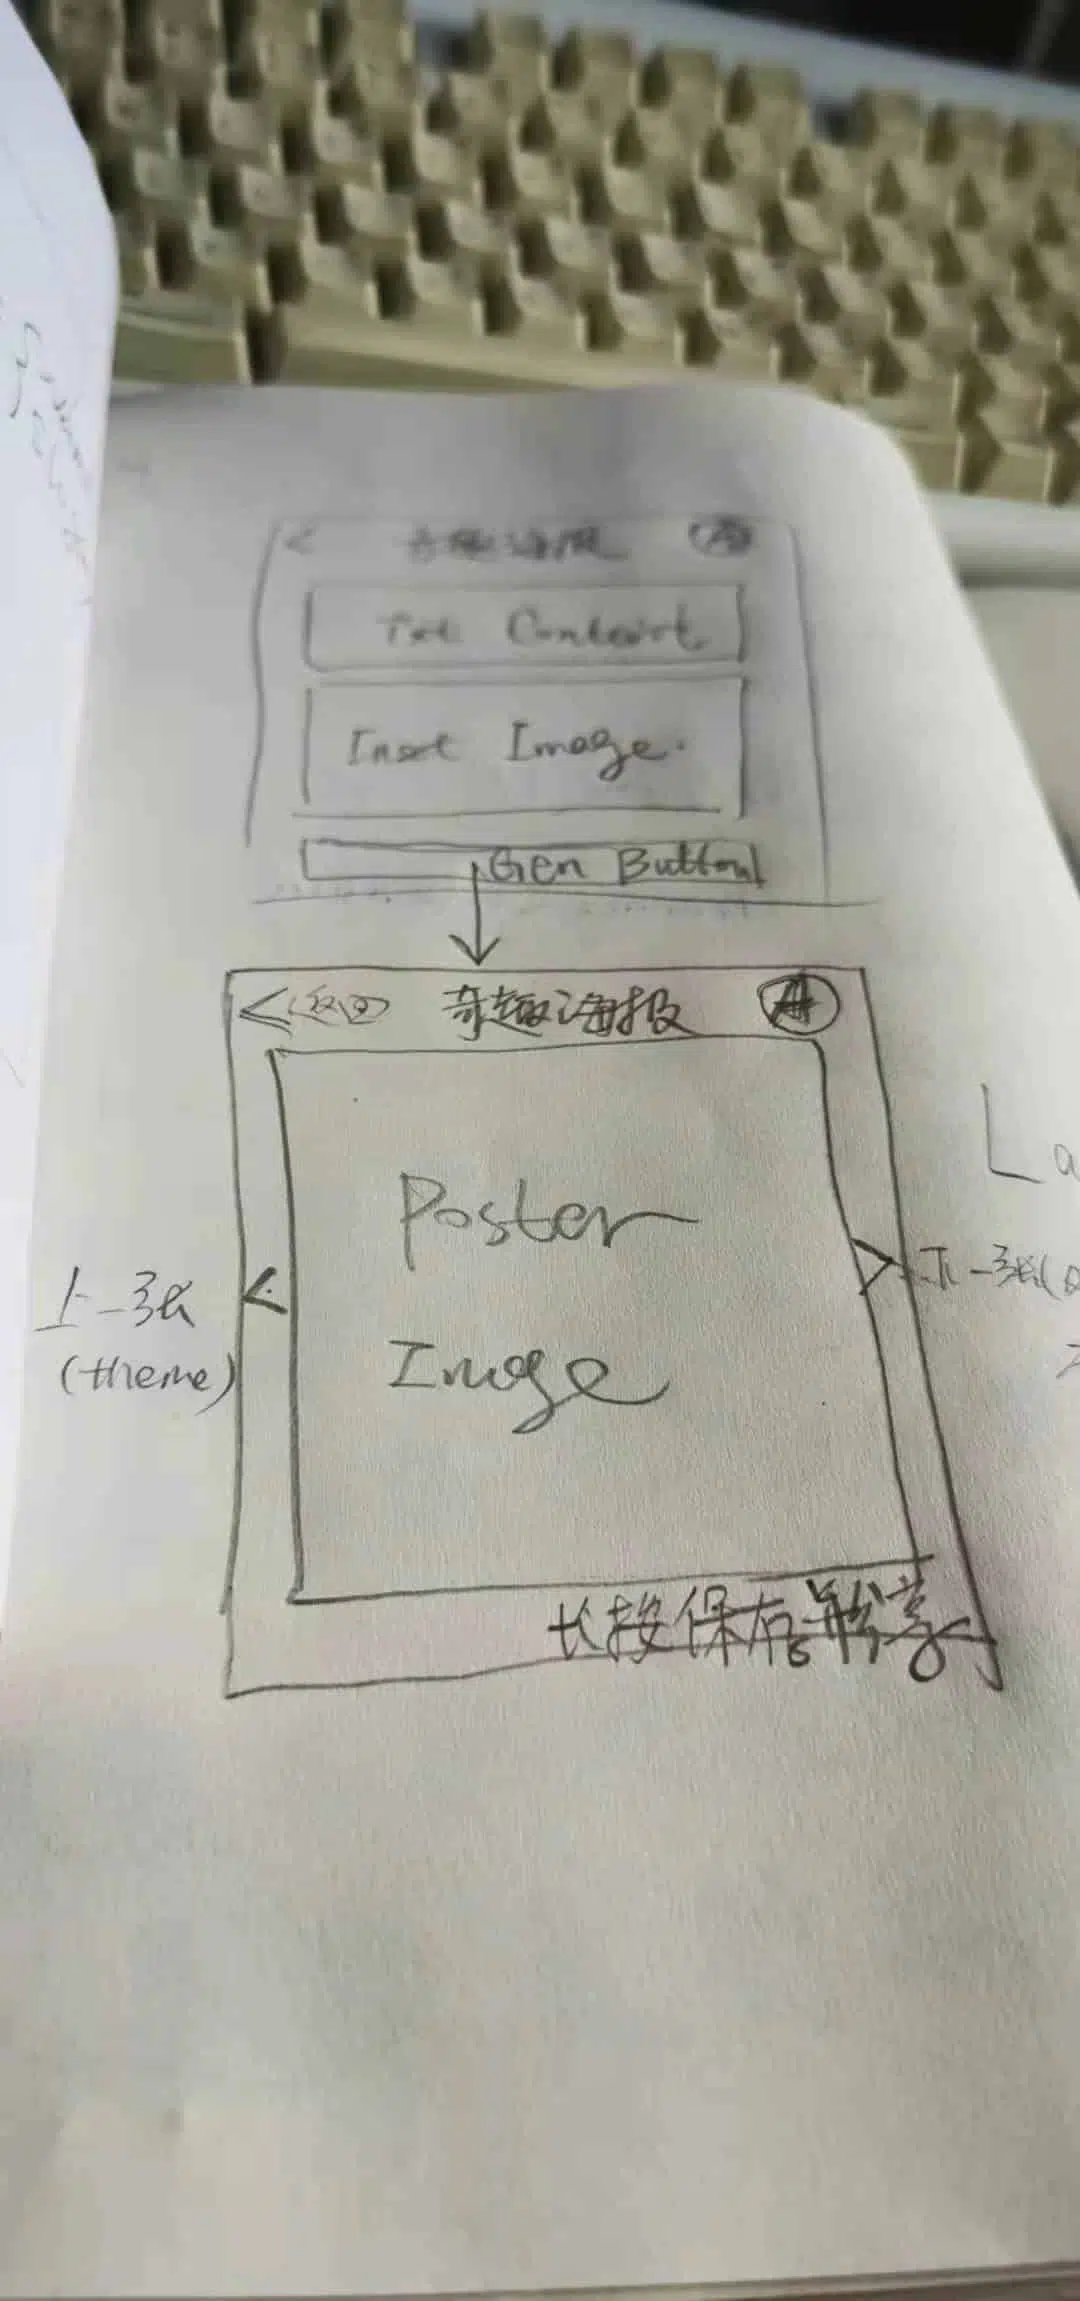 <
Txt Content
Inset Image.
Gen Button
<(返回) 奇趣海报
Poster
Image
上一张
(theme)
下一张(
La
长按保存与分享